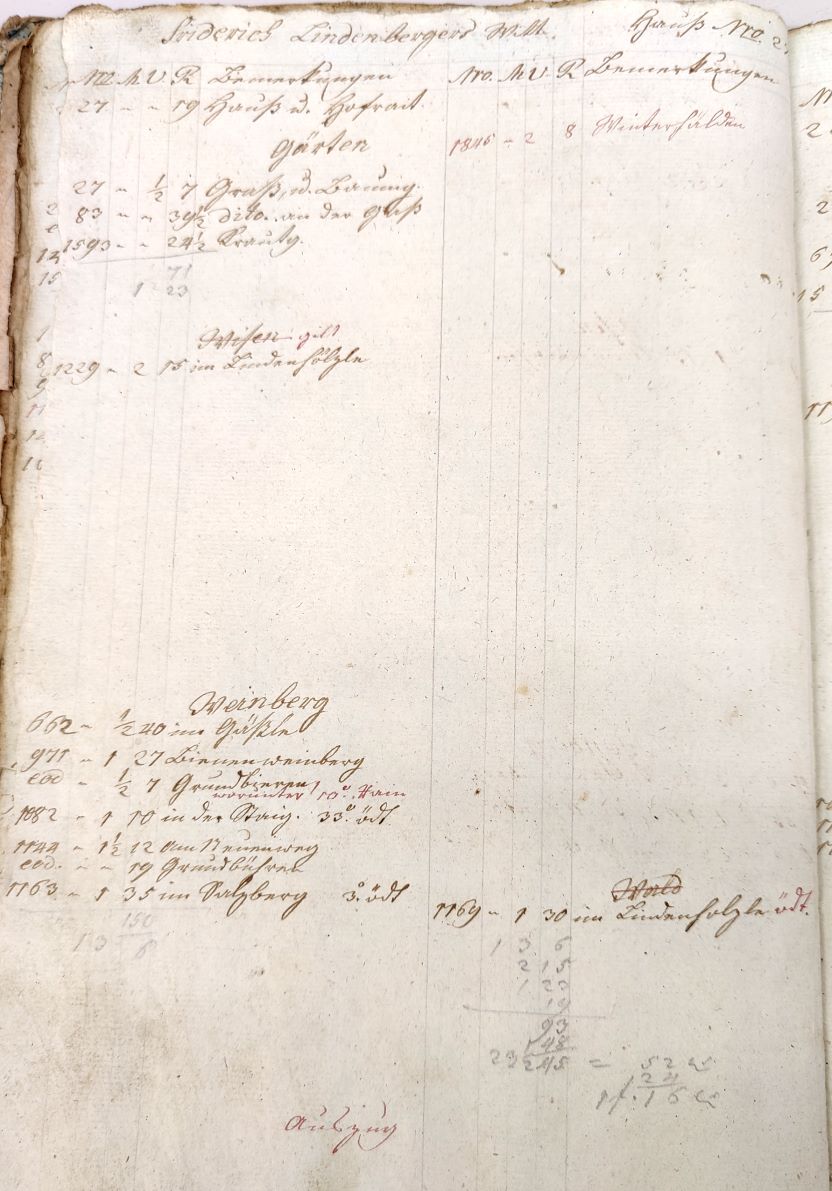 Friderich Lindenbergers Witt. Hauß Nro. 2
Nro M V R Bemerkungen
27 - - 19 Hauß u. Hofrait
Gärten
27 - ½ 7 Graß, u. Baumg.
83 - - 39½ dito. an der Gaß
1593 - - 24½ Krautg.
71
1 23
Wisen gilt
1229 - 2 15 im Lindenhölzle
Weinberg
662 - ½ 40 im Gäßle
971 - 1 27 Bienenweinberg
eod - ½ 7 Grundbieren
worunter 10° Rain
1082 - 1 10 in der Staig. 33° ödt
1144 - 1½ 12 am Neuenweg
eod. - - 19 Grundbühren
1163 - 1 35 im Salzberg 3° ödt
150
1 3 6
Auszug
Nro. M V R Bemerkungen
1846 - 2 8 Winterhälden
Wald
1169 - 1 30 im Lindenholzle ödt.
1 3 6
2 15
1 23
19
93
48
2 3 2 45 = 52
24
1 f. 16